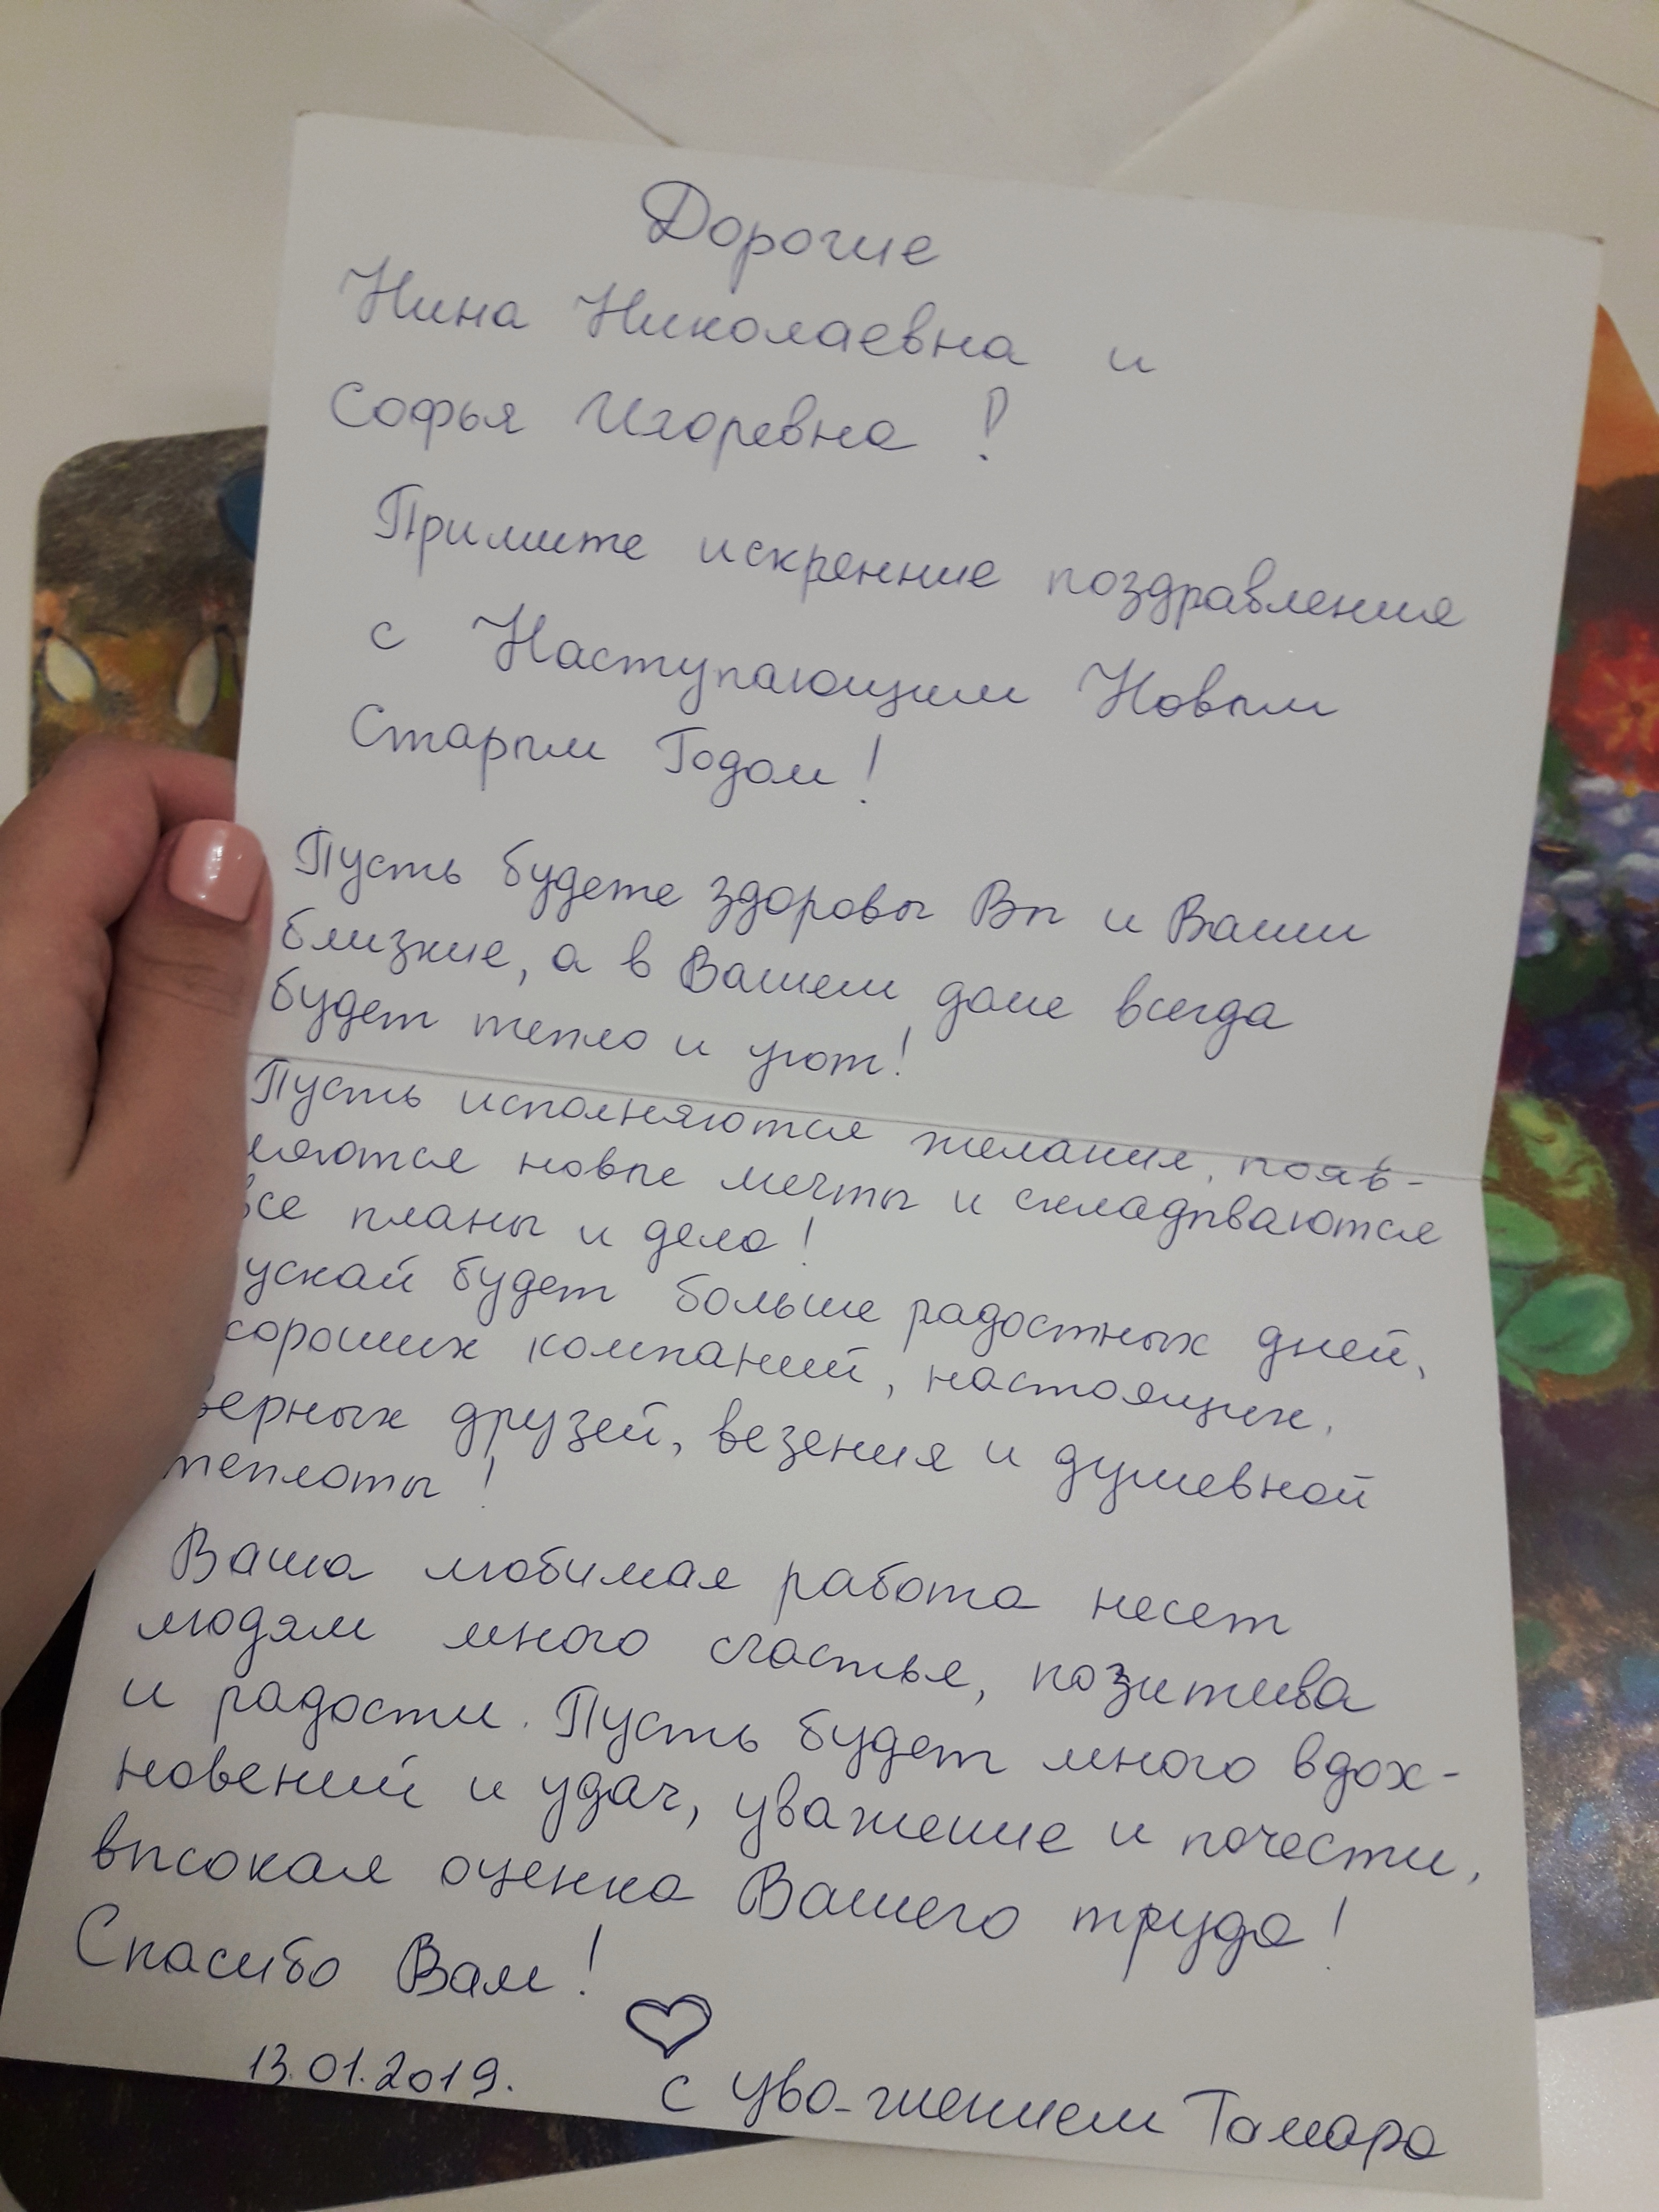 Дорогие
Нина Николаевна и
Софья Игоревна!
Примите искренние поздравления
с Наступающим Новым
Старым Годом!
Пусть будете здоровы Вы и Ваши
близкие, а в Вашем доме всегда
будет тепло и уют!
Пусть исполняются желания, появ-
ляются новые мечты и складываются
все планы и дела!
ускай будет больше радостных дней,
хороших компаний, настоящих,
верных друзей, везения и душевной
теплоты!
Ваша любимая работа несет
людям много счастья, позитива
и радости. Пусть будет много вдох-
новений и удач, уважение и почести,
высокая оценка Вашего труда!
Спасибо Вам!
13.01.2019. с ува-жением Тамара